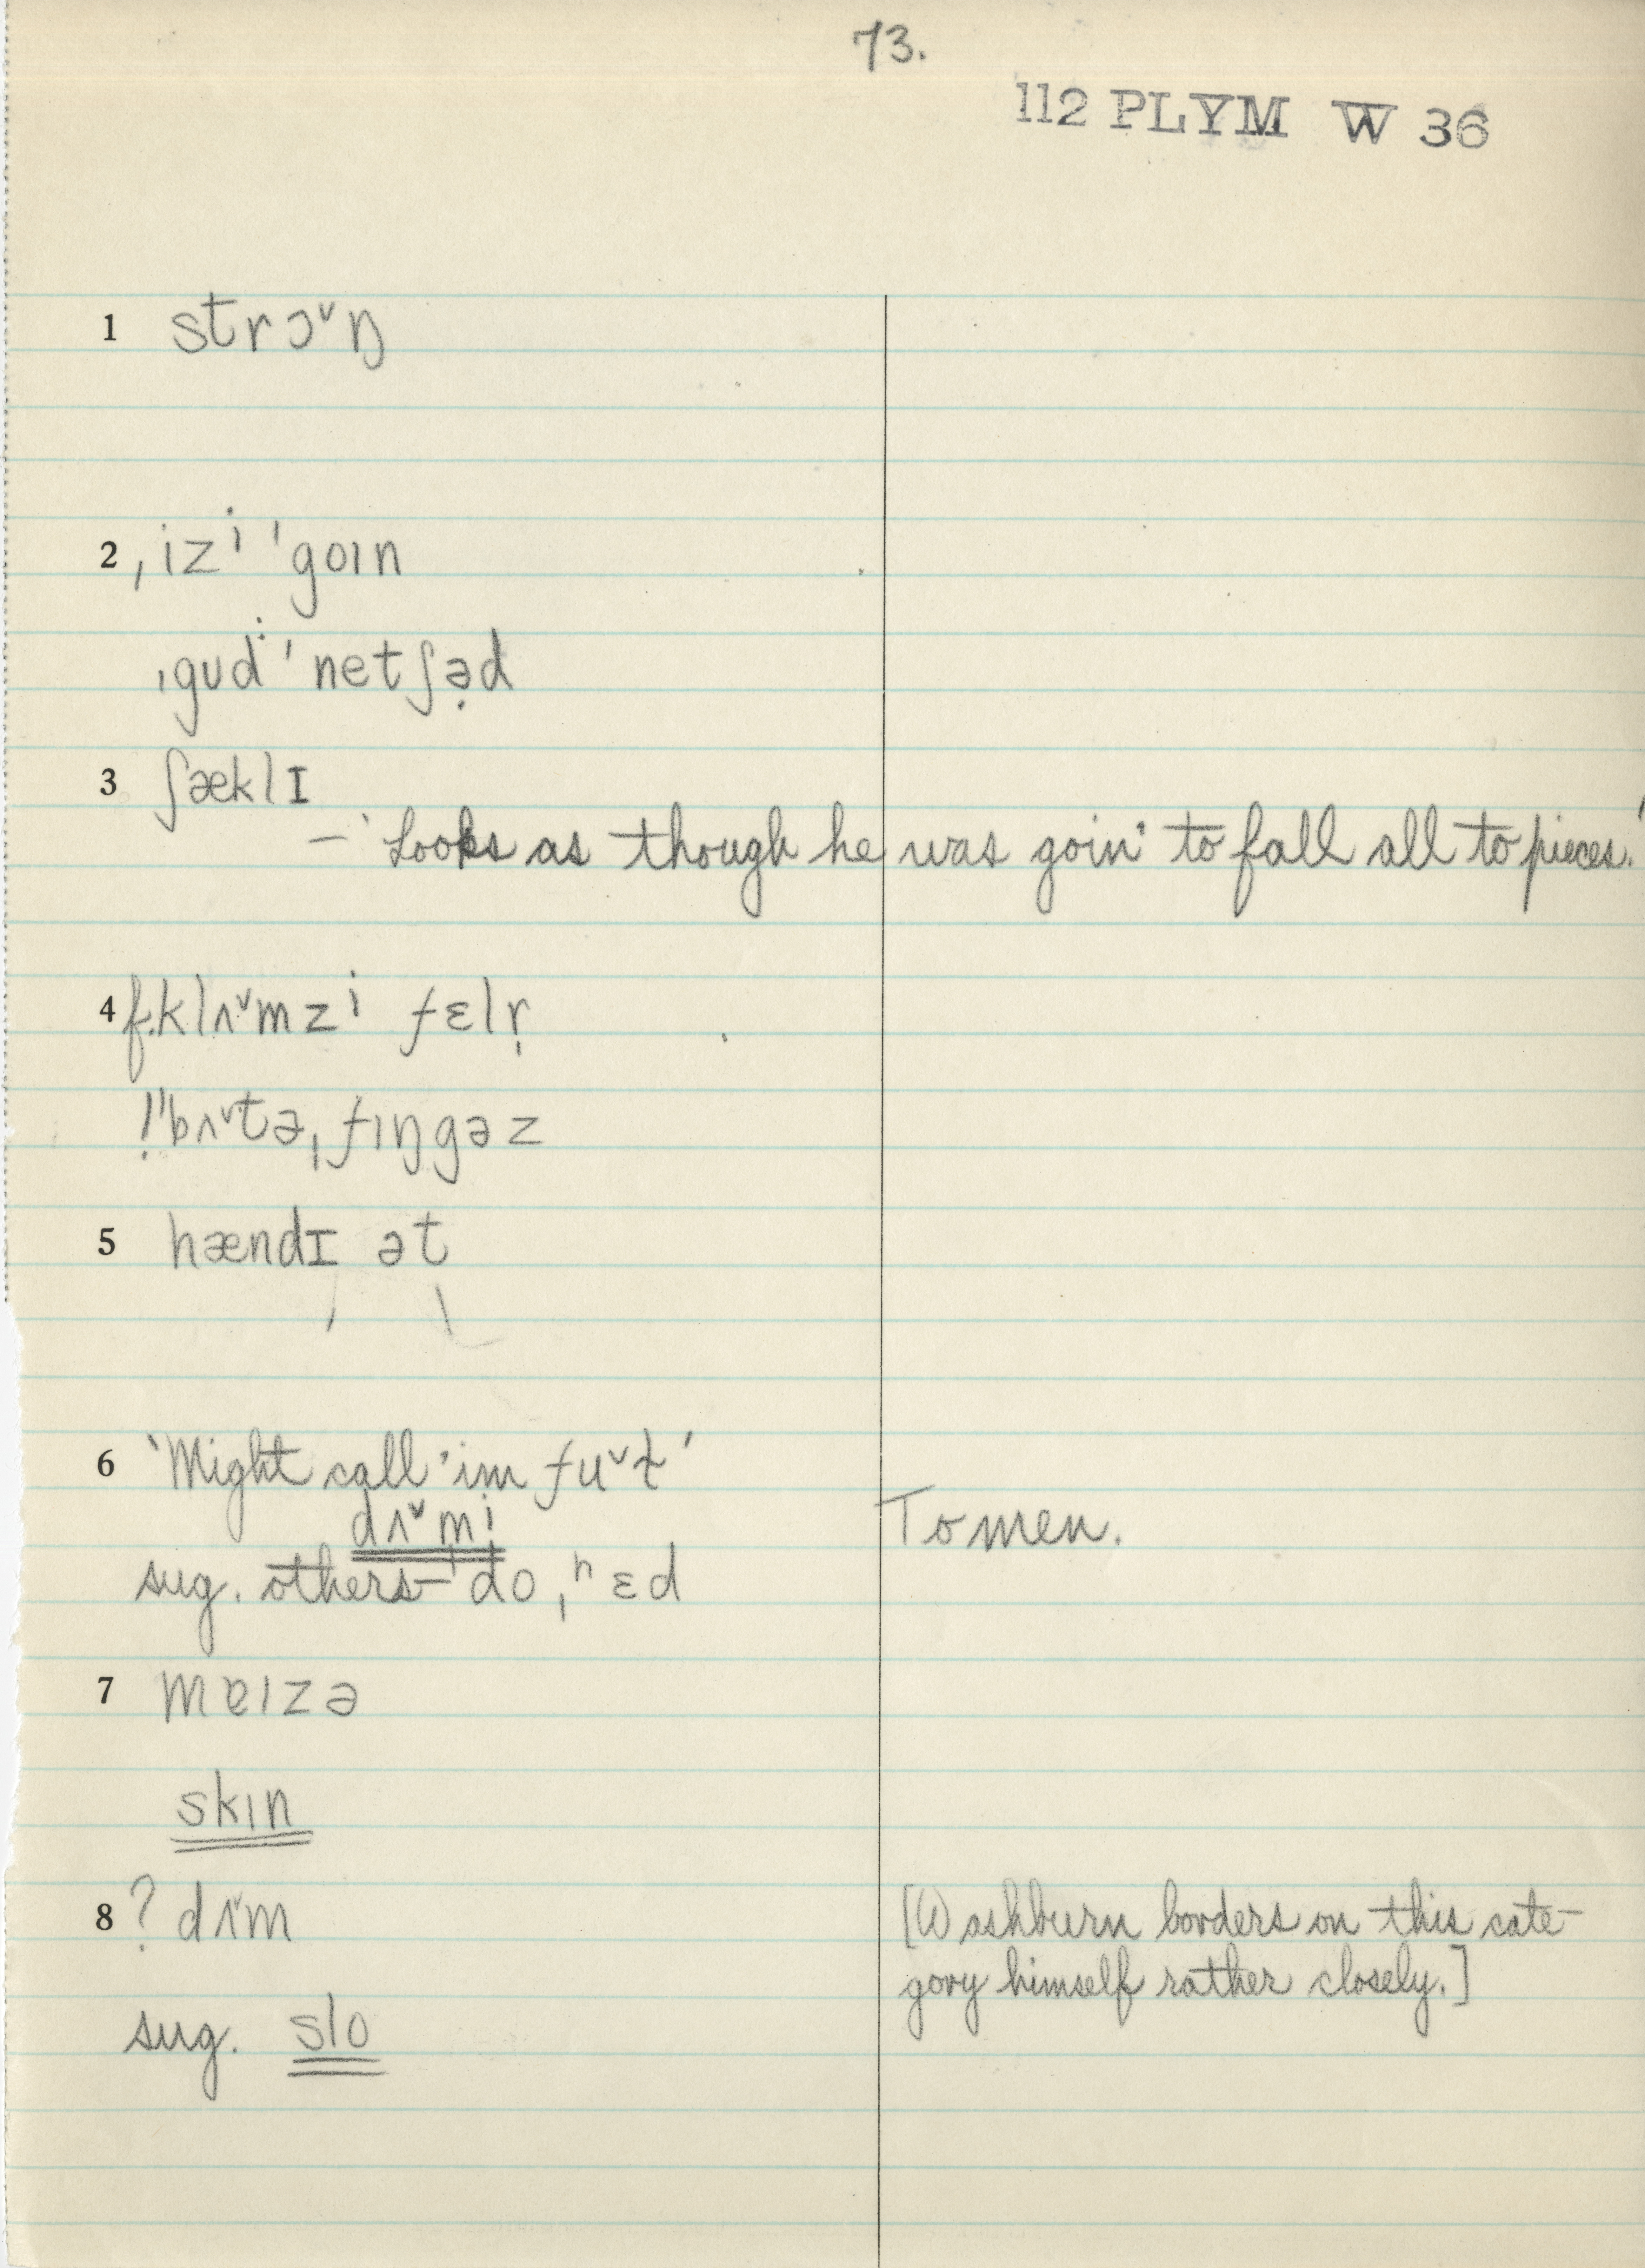 73.
112 PLYM W 36
1 strɔˇŋ
2 ˌizⁱ ˈgoɪn
ˌgʊd ˈnetʃə̣d
3 ʃæklɪ
– 'Looks as though he was goin' to fall all to pieces.'
4 f. klʌˇmzⁱ fɛlr̩
!ˈbʌˇtəˌfɪŋgəz
5 hændɪ ət
6 'Might call 'im fuˇɫ'
dʌˇmi
To men.
sug. others – ˈdoˌʰɛd
7 mɐɪzə
skɪn
8 ? dʌˇm
[Washburn borders on this cate-
gory himself rather closely.]
sug. slo